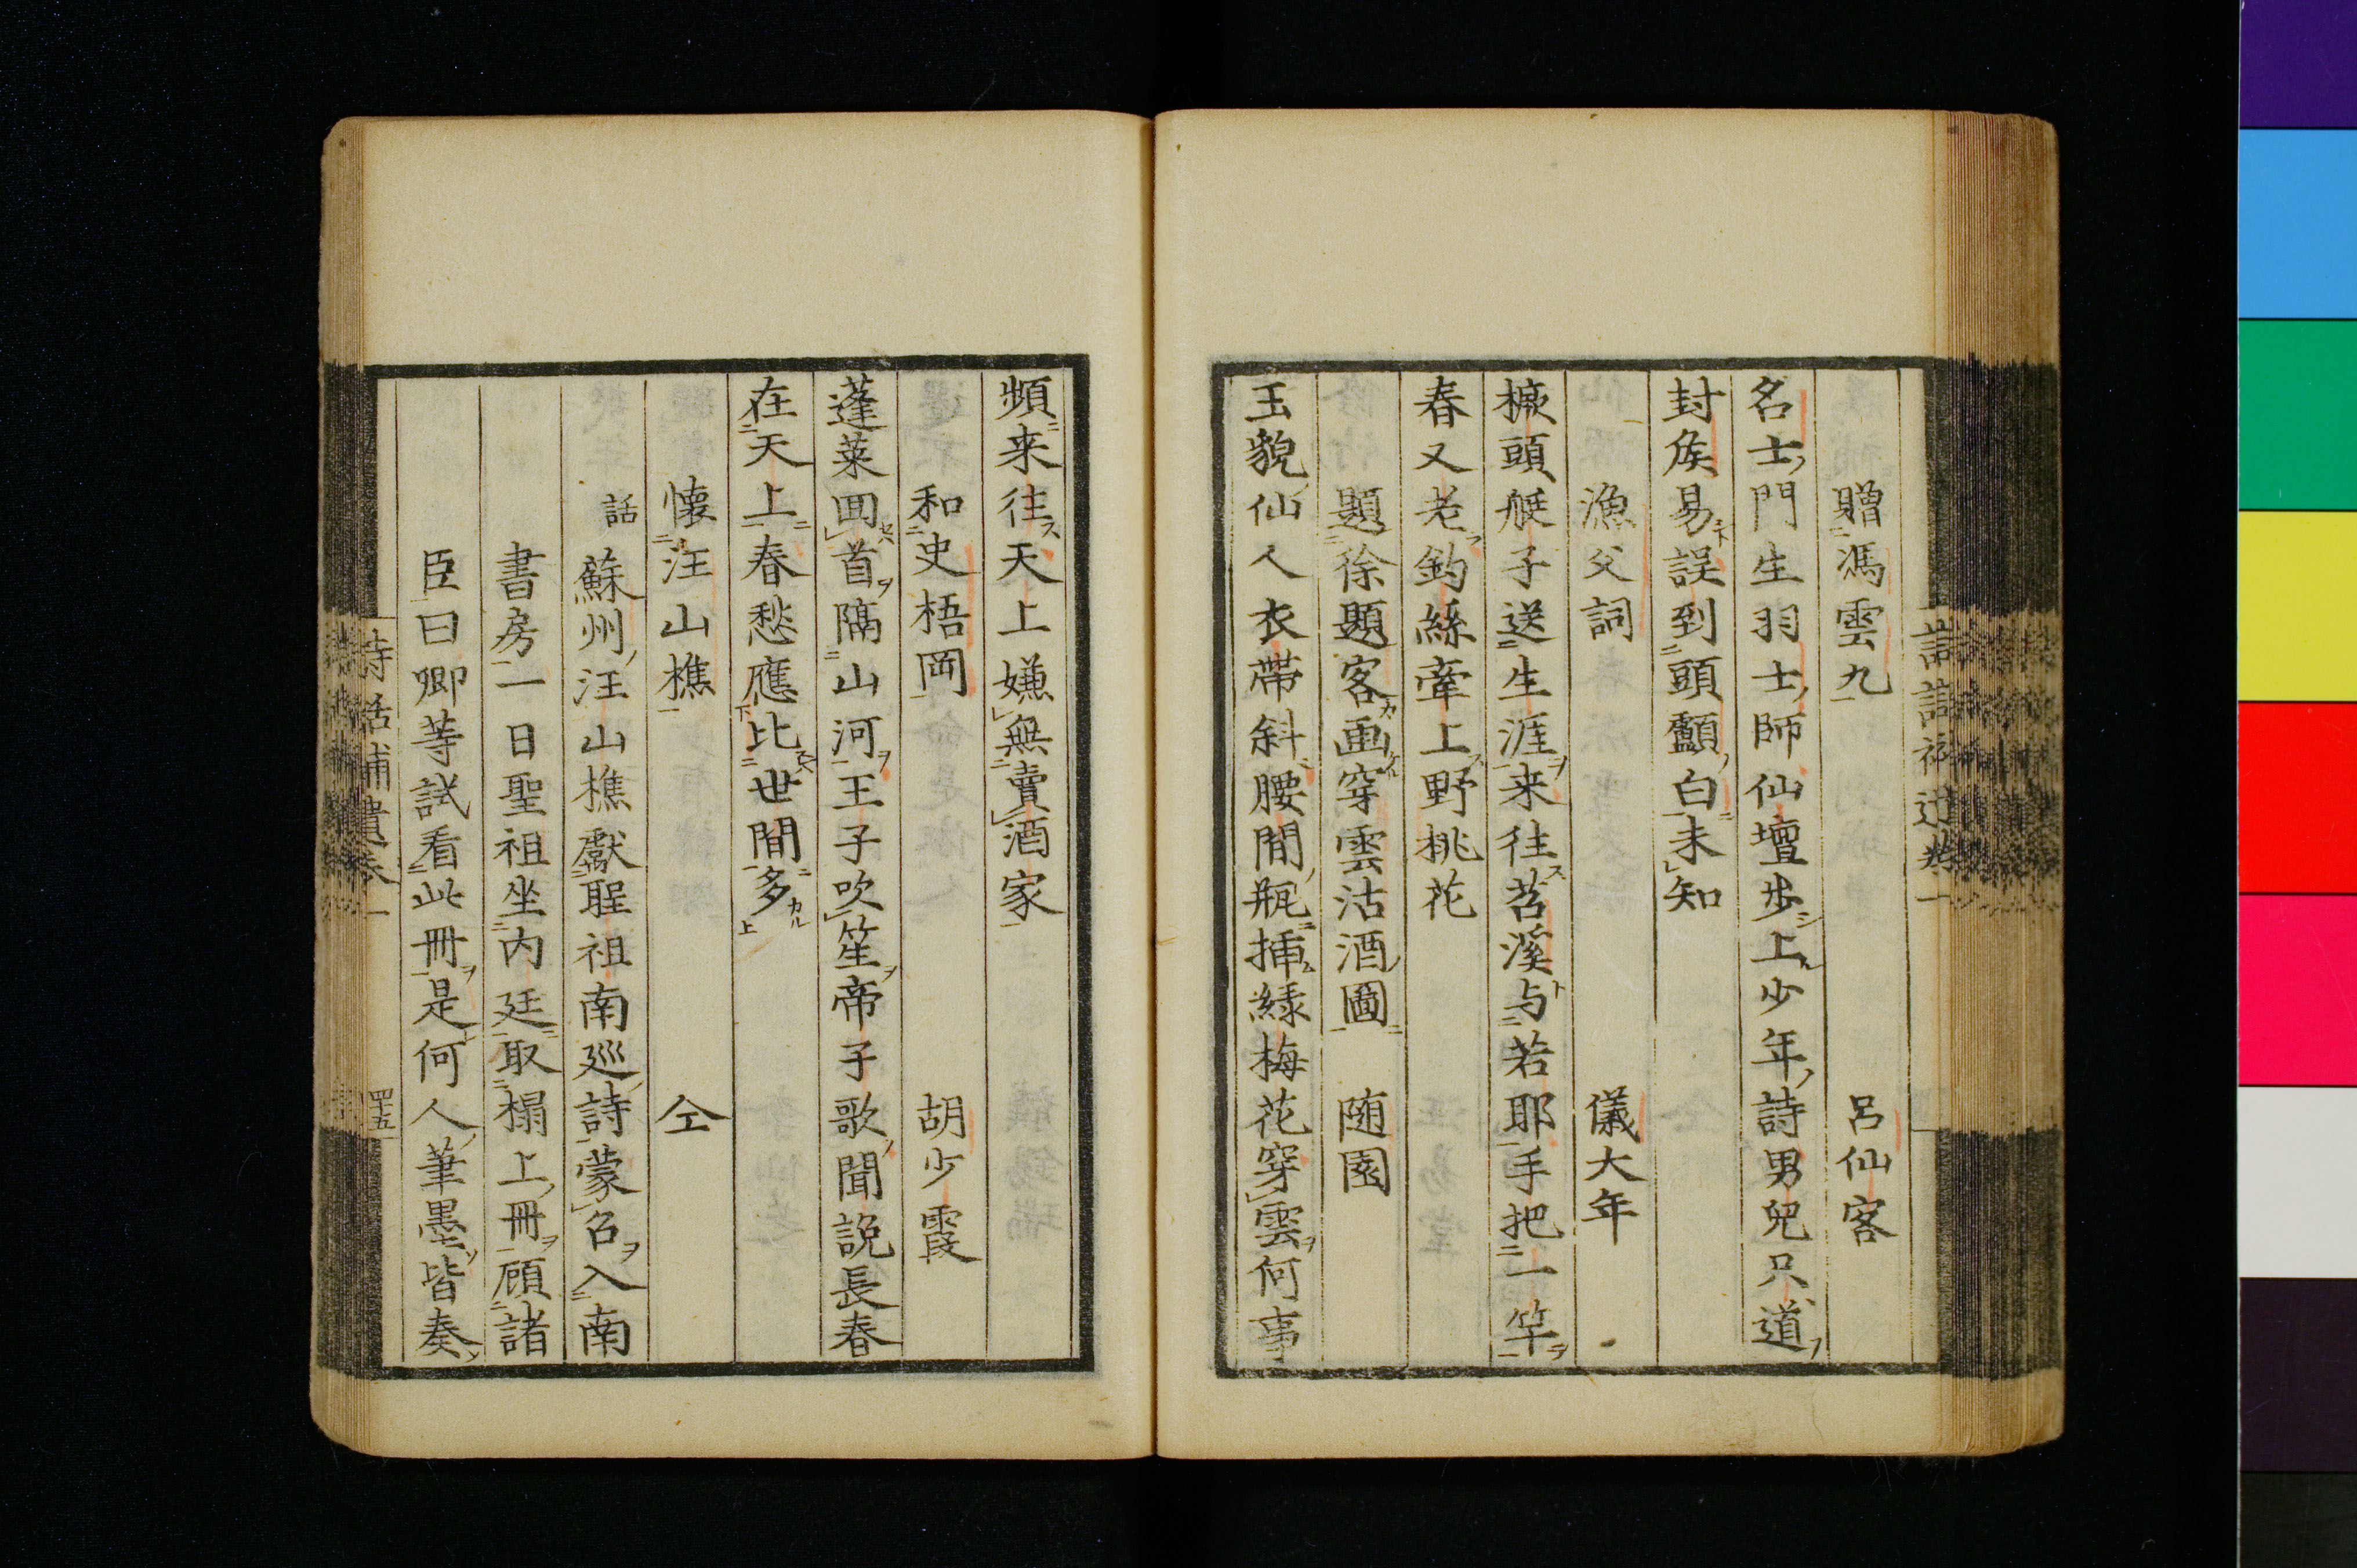 贈馮雲九　呂仙客
名士門生羽士師仙壇步上少年詩男兒只道
封矦易誤到頭顱白未知
漁父詞　儀大年
橛頭艇子送生涯来往苕溪与若耶手把一竿
春又老釣絲牽上野桃花
題徐題客画穿雲沽酒圖　随園
玉貌仙人衣帶斜腰間瓶挿緑梅花穿雲何事
頻来往天上嫌無賣酒家
和史梧岡　胡少霞
蓬莱囬首隔山河王子吹笙帝子歌聞說長春
在天上春愁應比世間多
懷汪山樵　仝
話　蘇州汪山樵獻聖祖南巡詩蒙召入南
書房一日聖祖坐内廷取榻上冊顧諸
臣曰卿等試看此冊是何人筆墨皆奏
詩話補遺卷一　四十五